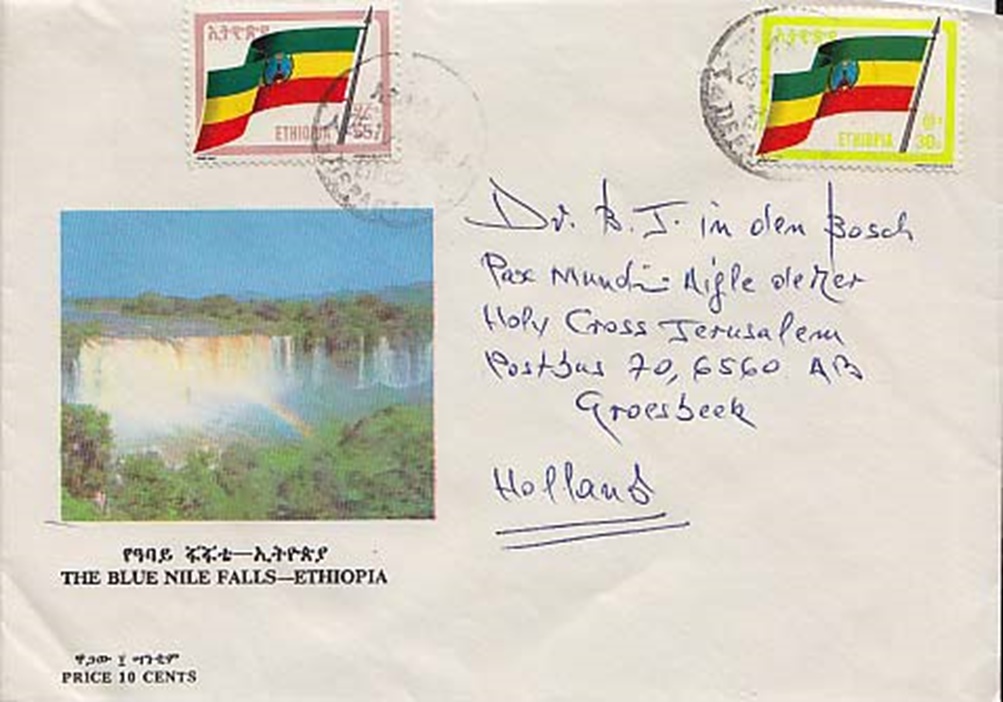 ኢትዮጵያ
ETHIOPIA
55
ኢትዮጵያ
ETHIOPIA
30
Dr. B. J. in den Bosch
Pax Mundi - Aigle de Mer
Holy Cross Jerusalem
Postbus 70, 6560 AB
Groesbeek
Holland
የዓባይ ፏፏቴ—ኢትዮጵያ
THE BLUE NILE FALLS—ETHIOPIA
ዋጋው ፲ ሣንቲም
PRICE 10 CENTS